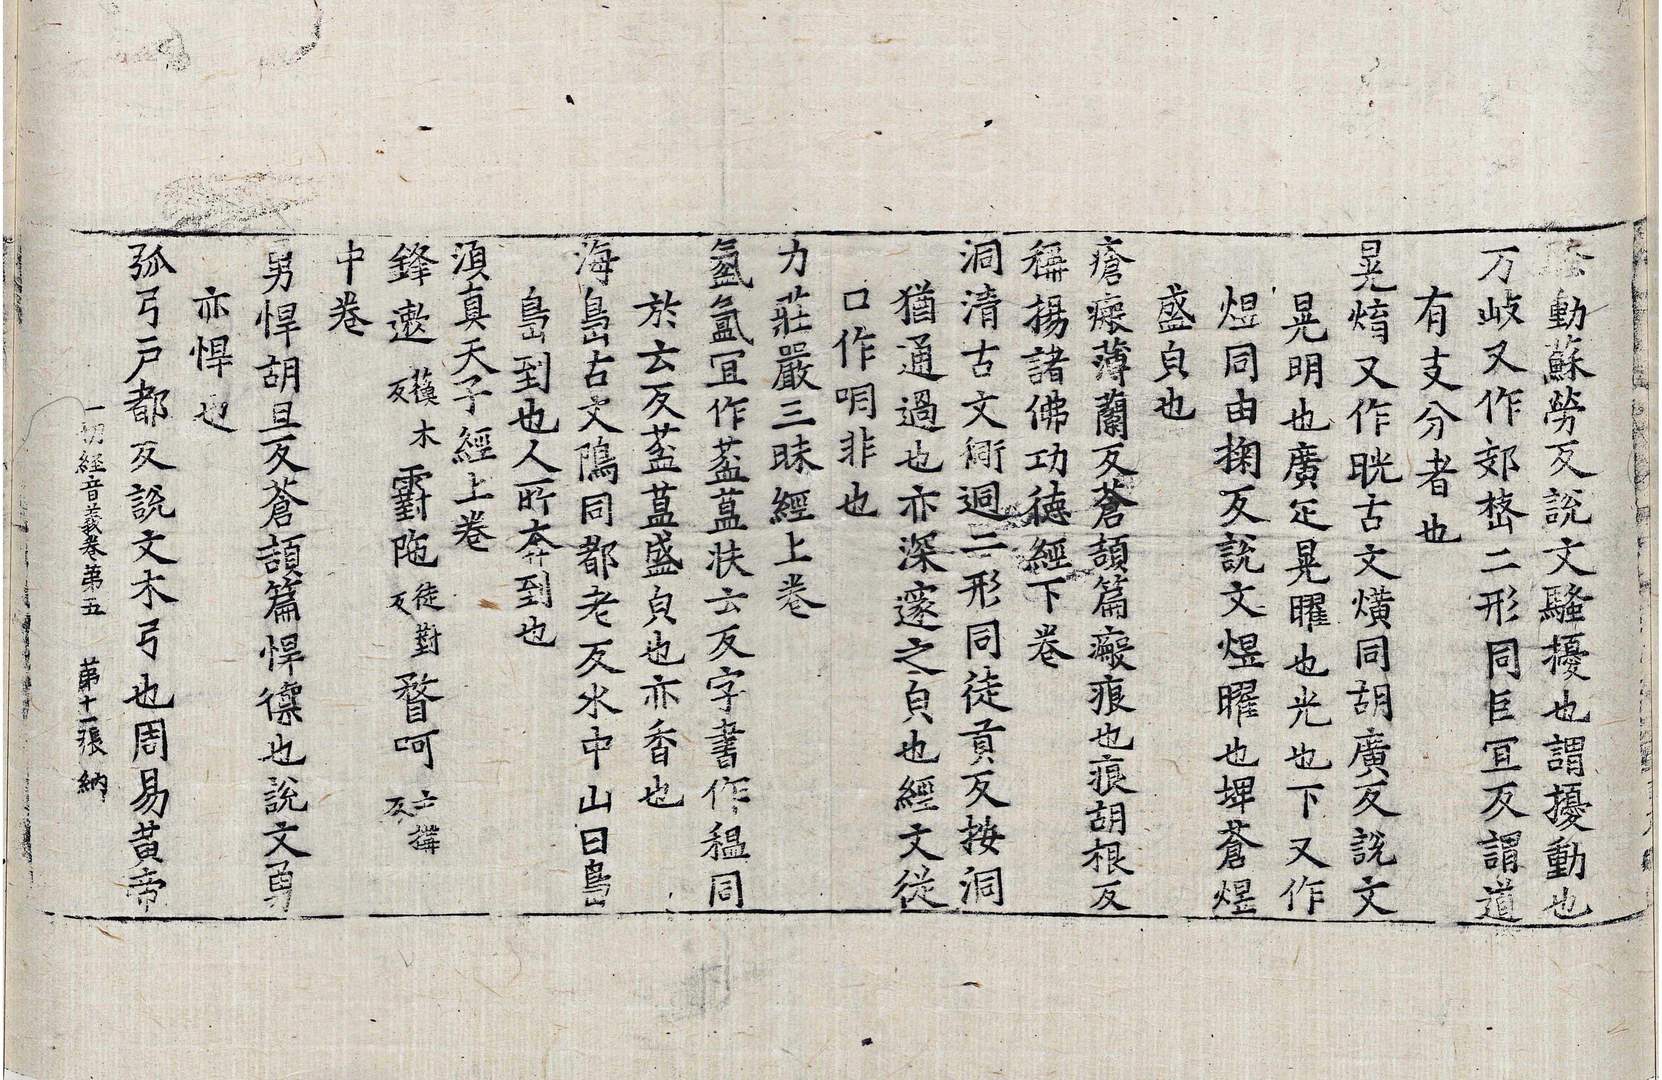 動蘇勞反說文騷擾也謂擾動也
万歧又作郊㟚二形同巨宜反謂道
有支分者也
晃焴又作晄古文熿同胡廣反說文
晃明也廣疋晃曜也光也下又作
焜同由掬反說文焜曜也埤蒼焜
盛皃也
瘡瘢薄蘭反蒼頡篇瘢痕也痕胡根反
稱揚諸佛功德經下卷
洞清古文衕迵二形同徒貢反按洞
猶通過也亦深邃之皃也經文從
口作哃非也
力莊嚴三昧經上卷
氳氳宜作葐蒀扶云反字書作䅵同
於云反葐蒀盛皃也亦香也
海島古文隝同都老反水中山曰島
島到也人所奔到也
須真天子經上卷
鋒遬 蘓木反 霴陁 徒對反 瞀呵 亡搆反
中卷
勇悍胡旦反蒼頡篇悍懔也說文勇
亦悍也
弧弓戶都反說文木弓也周易黃帝
一切經音義卷第五 第十一張 納